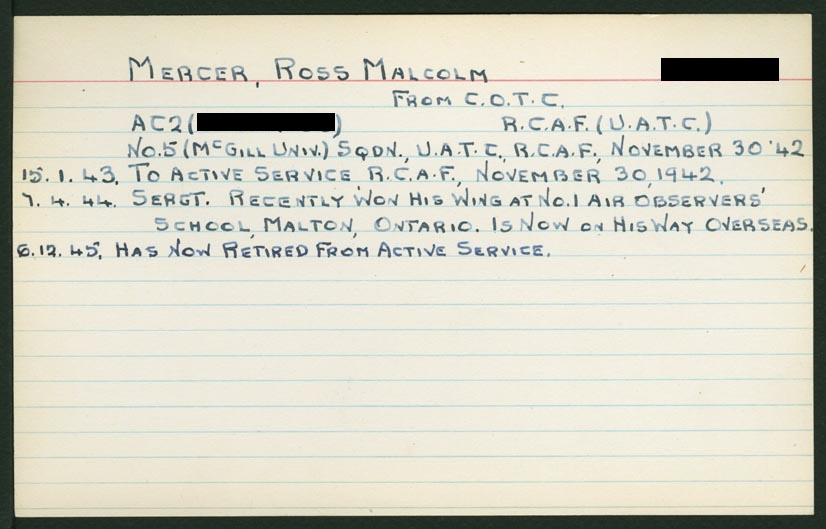 MERCER, ROSS MALCOLM
FROM C.O.T.C.
AC2 ( ) R.C.A.F. (U.A.T.C.)
No. 5 (McGILL UNIV.) SQDN., U.A.T.C., R.C.A.F., NOVEMBER 30 '42
15. 1. 43. TO ACTIVE SERVICE R.C.A.F., NOVEMBER 30, 1942.
7. 4. 44. SERGT. RECENTLY WON HIS WING AT No. 1 AIR OBSERVERS'
SCHOOL, MALTON, ONTARIO. IS NOW ON HIS WAY OVERSEAS.
6. 12. 45. HAS NOW RETIRED FROM ACTIVE SERVICE.